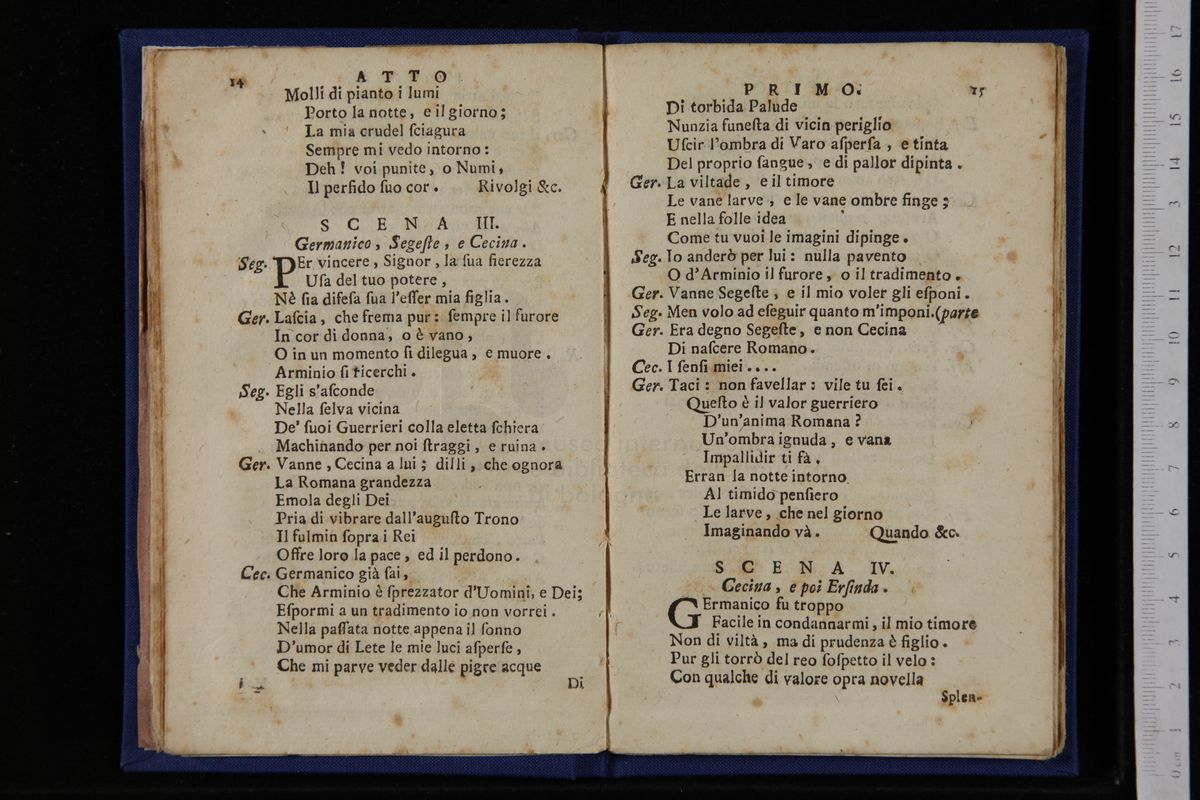 14
ATTO
Molli di pianto i lumi
Porto la notte, e il giorno;
La mia crudel ſciagura
Sempre mi vedo intorno:
Deh! voi punite, o Numi,
Il perfido ſuo cor. Rivolgi &c.
SCENA III.
Germanico, Segeſte, e Cecina.
Seg. PEr vincere, Signor, la ſua fierezza
Uſa del tuo potere,
Nè ſia difeſa ſua l'eſſer mia figlia.
Ger. Laſcia, che frema pur: ſempre il furore
In cor di donna, o è vano,
O in un momento ſi dilegua, e muore.
Arminio ſi ricerchi.
Seg. Egli s'aſconde
Nella ſelva vicina
De' ſuoi Guerrieri colla eletta ſchiera
Machinando per noi ſtraggi, e ruina.
Ger. Vanne, Cecina a lui; dilli, che ognora
La Romana grandezza
Emola degli Dei
Pria di vibrare dall'auguſto Trono
Il fulmin ſopra i Rei
Offre loro la pace, ed il perdono.
Cec. Germanico già ſai,
Che Arminio è ſprezzator d'Uomini, e Dei;
Eſpormi a un tradimento io non vorrei.
Nella paſſata notte appena il ſonno
D'umor di Lete le mie luci aſperſe,
Che mi parve veder dalle pigre acque
Di
PRIMO.
15
Di torbida Palude
Nunzia funeſta di vicin periglio
Uſcir l'ombra di Varo aſperſa, e tinta
Del proprio ſangue, e di pallor dipinta.
Ger. La viltade, e il timore
Le vane larve, e le vane ombre finge;
E nella folle idea
Come tu vuoi le imagini dipinge.
Seg. Io anderò per lui: nulla pavento
O d'Arminio il furore, o il tradimento.
Ger. Vanne Segeſte, e il mio voler gli eſponi.
Seg. Men volo ad eſeguir quanto m'imponi.(parte
Ger. Era degno Segeſte, e non Cecina
Di naſcere Romano.
Cec. I ſenſi miei....
Ger. Taci: non favellar: vile tu ſei.
Queſto è il valor guerriero
D'un'anima Romana?
Un'ombra ignuda, e vana
Impallidir ti fà.
Erran la notte intorno
Al timido penſiero
Le larve, che nel giorno
Imaginando và. Quando &c.
SCENA IV.
Cecina, e poi Erſinda.
GErmanico fu troppo
Facile in condannarmi, il mio timore
Non di viltà, ma di prudenza è figlio.
Pur gli torrò del reo ſoſpetto il velo:
Con qualche di valore opra novella
Splen-